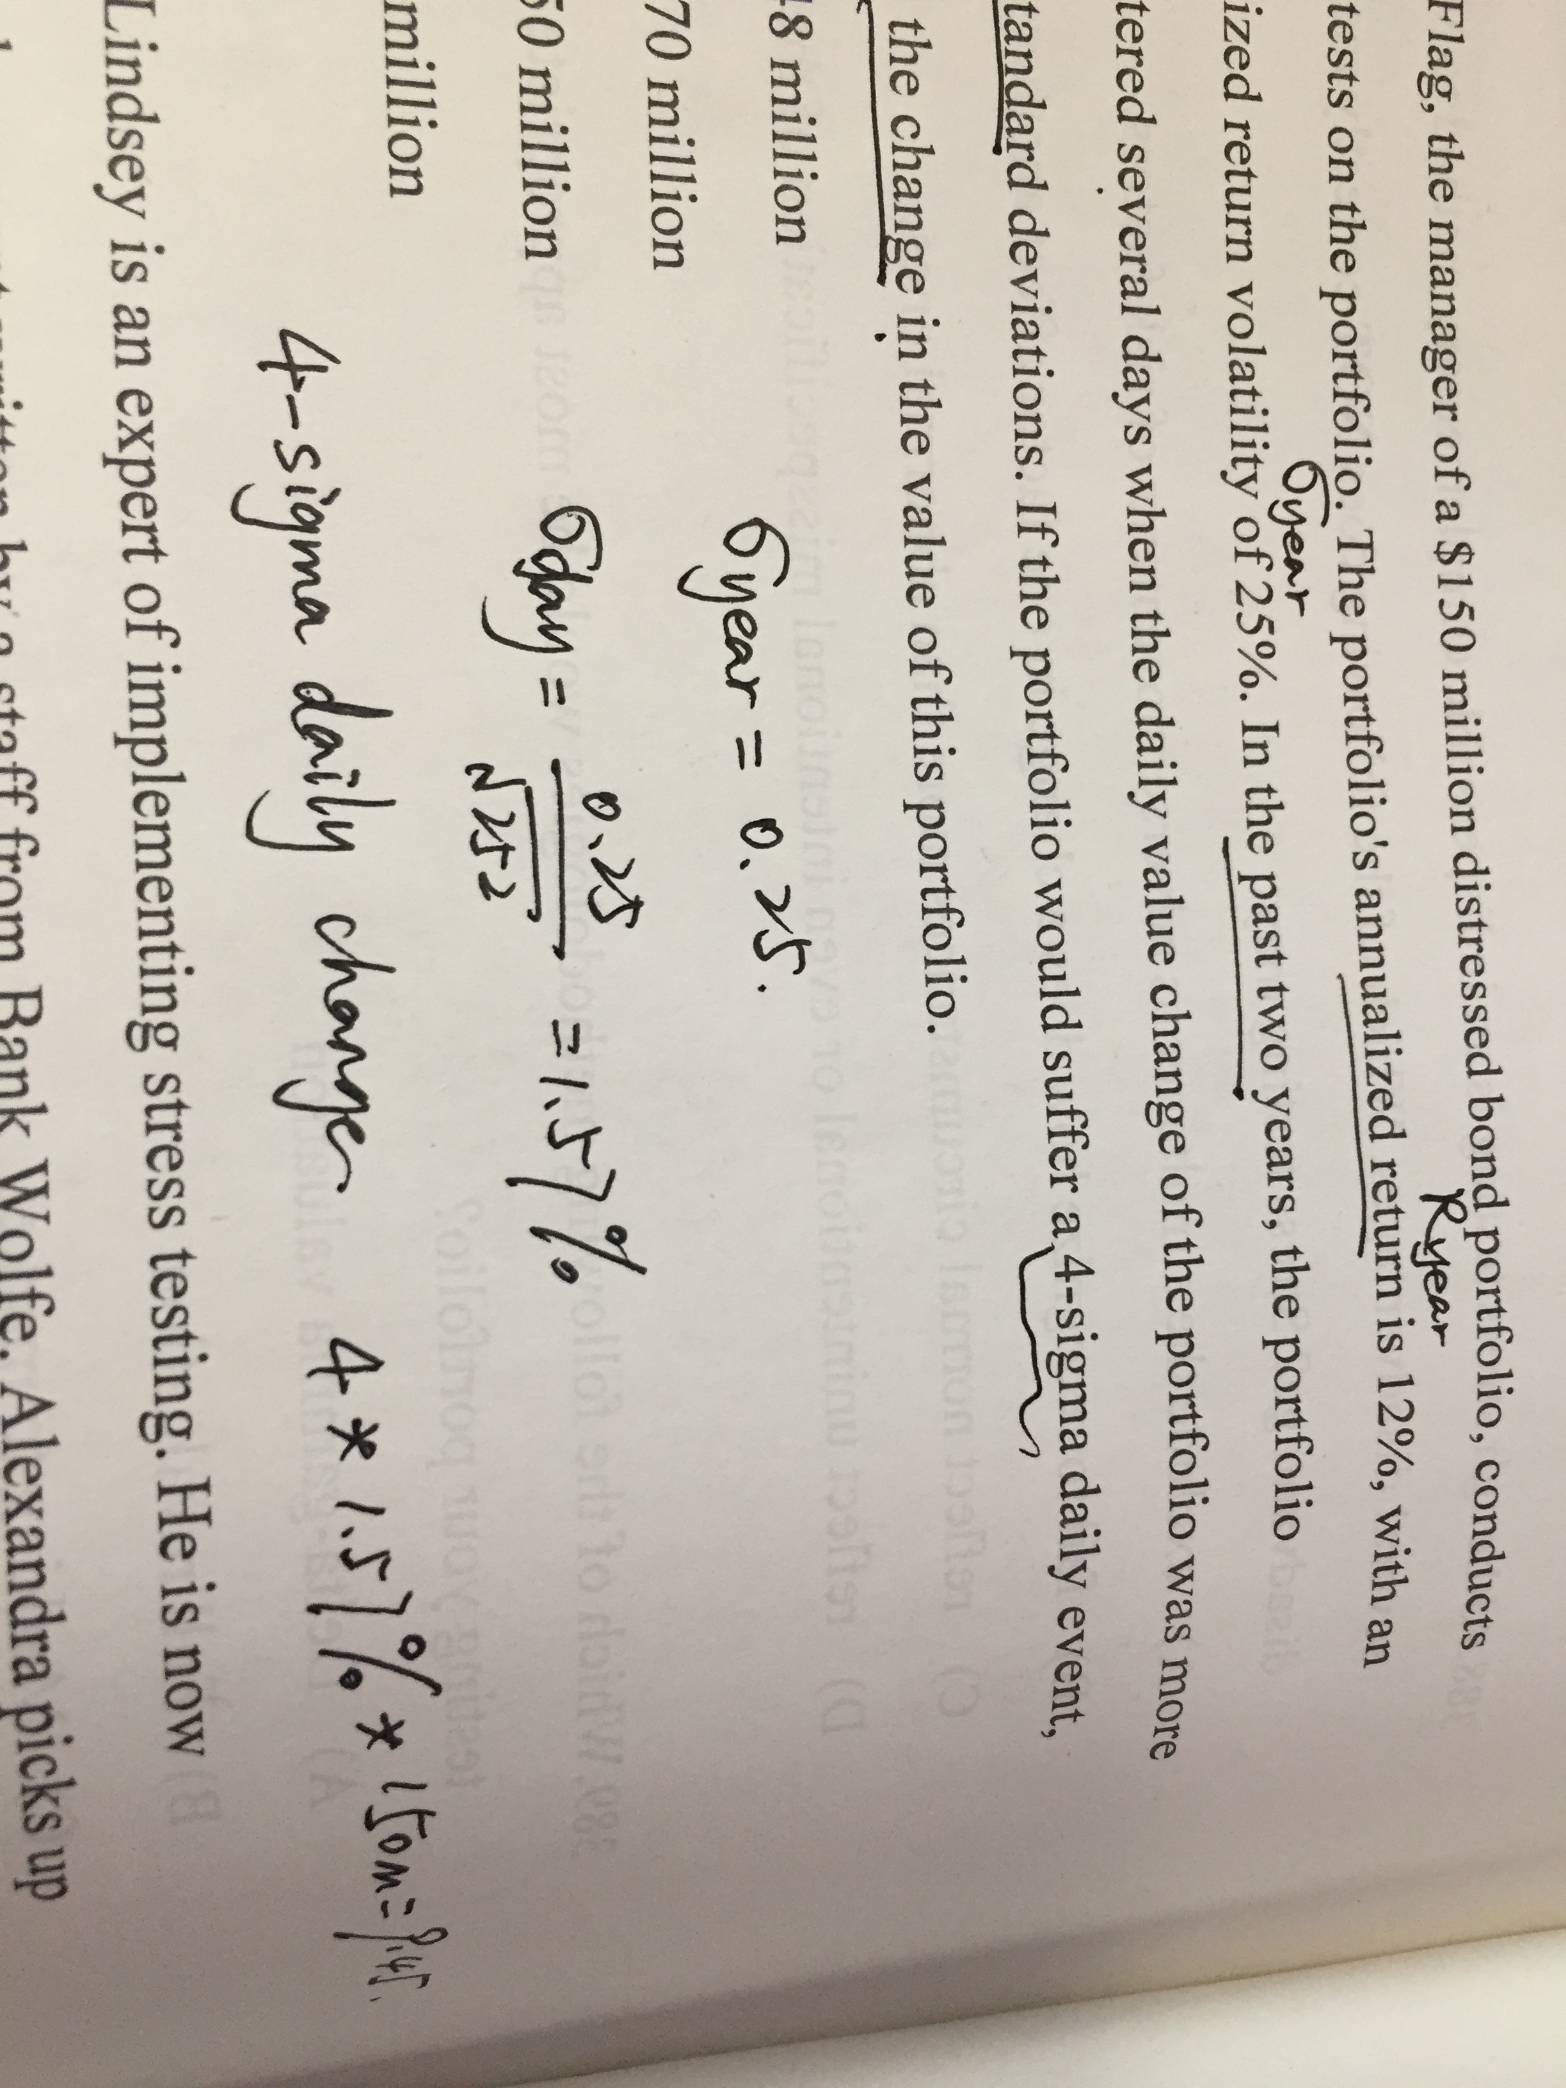 Flag, the manager of a $150 million distressed bond portfolio, conducts
Ryear
tests on the portfolio. The portfolio's annualized return is 12%, with an
σyear
ized return volatility of 25%. In the past two years, the portfolio
tered several days when the daily value change of the portfolio was more
tandard deviations. If the portfolio would suffer a 4-sigma daily event,
the change in the value of this portfolio.
48 million
70 million
50 million
million
σyear = 0.25.
σday = 0.25 / √252 = 1.57%
4-sigma daily change 4 * 1.57% * 150m = 9.45.
Lindsey is an expert of implementing stress testing. He is now
staff from Bank Wolfe. Alexandra picks up